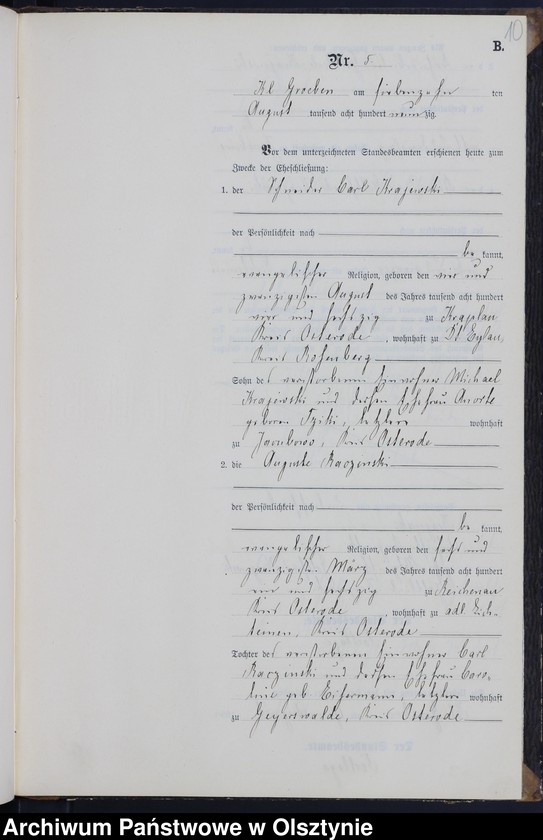 10
B.
Nr. 5
Kl Groeben am siebenzehn ten
August tausend acht hundert neunzig.
Vor dem unterzeichneten Standesbeamten erschienen heute zum
Zwecke der Eheschließung:
1. der Schneider Carl Krajewski
der Persönlichkeit nach
be kannt,
evangelischer Religion, geboren den vier und
zwanzigsten August des Jahres tausend acht hundert
vier und sechszig zu Kraplau
Kreis Osterode, wohnhaft zu Dt Eylau,
Kreis Rosenberg
Sohn des verstorbenen Einwohner Michael
Krajewski und dessen Ehefrau
geboren, letztere wohnhaft
zu Jacubowo, Kreis Osterode
2. die Auguste Raczinski
der Persönlichkeit nach
be kannt,
evangelischer Religion, geboren den sechs und
zwanzigsten März des Jahres tausend acht hundert
und sechszig zu Reichenau
Kreis Osterode, wohnhaft zu adl.
Kreis Osterode
Tochter des verstorbenen Einwohner Carl
Raczinski und dessen Ehefrau Caro-
line geb., letztere wohnhaft
zu Geyerswalde, Kreis Osterode
Archiwum Państwowe w Olsztynie